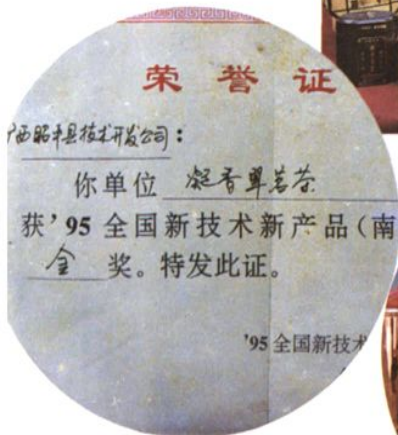 荣誉证
广西昭平县技术开发公司：
你单位 凝香翠茗茶
获’95 全国新技术新产品（南
金 奖。特发此证。
’95 全国新技术